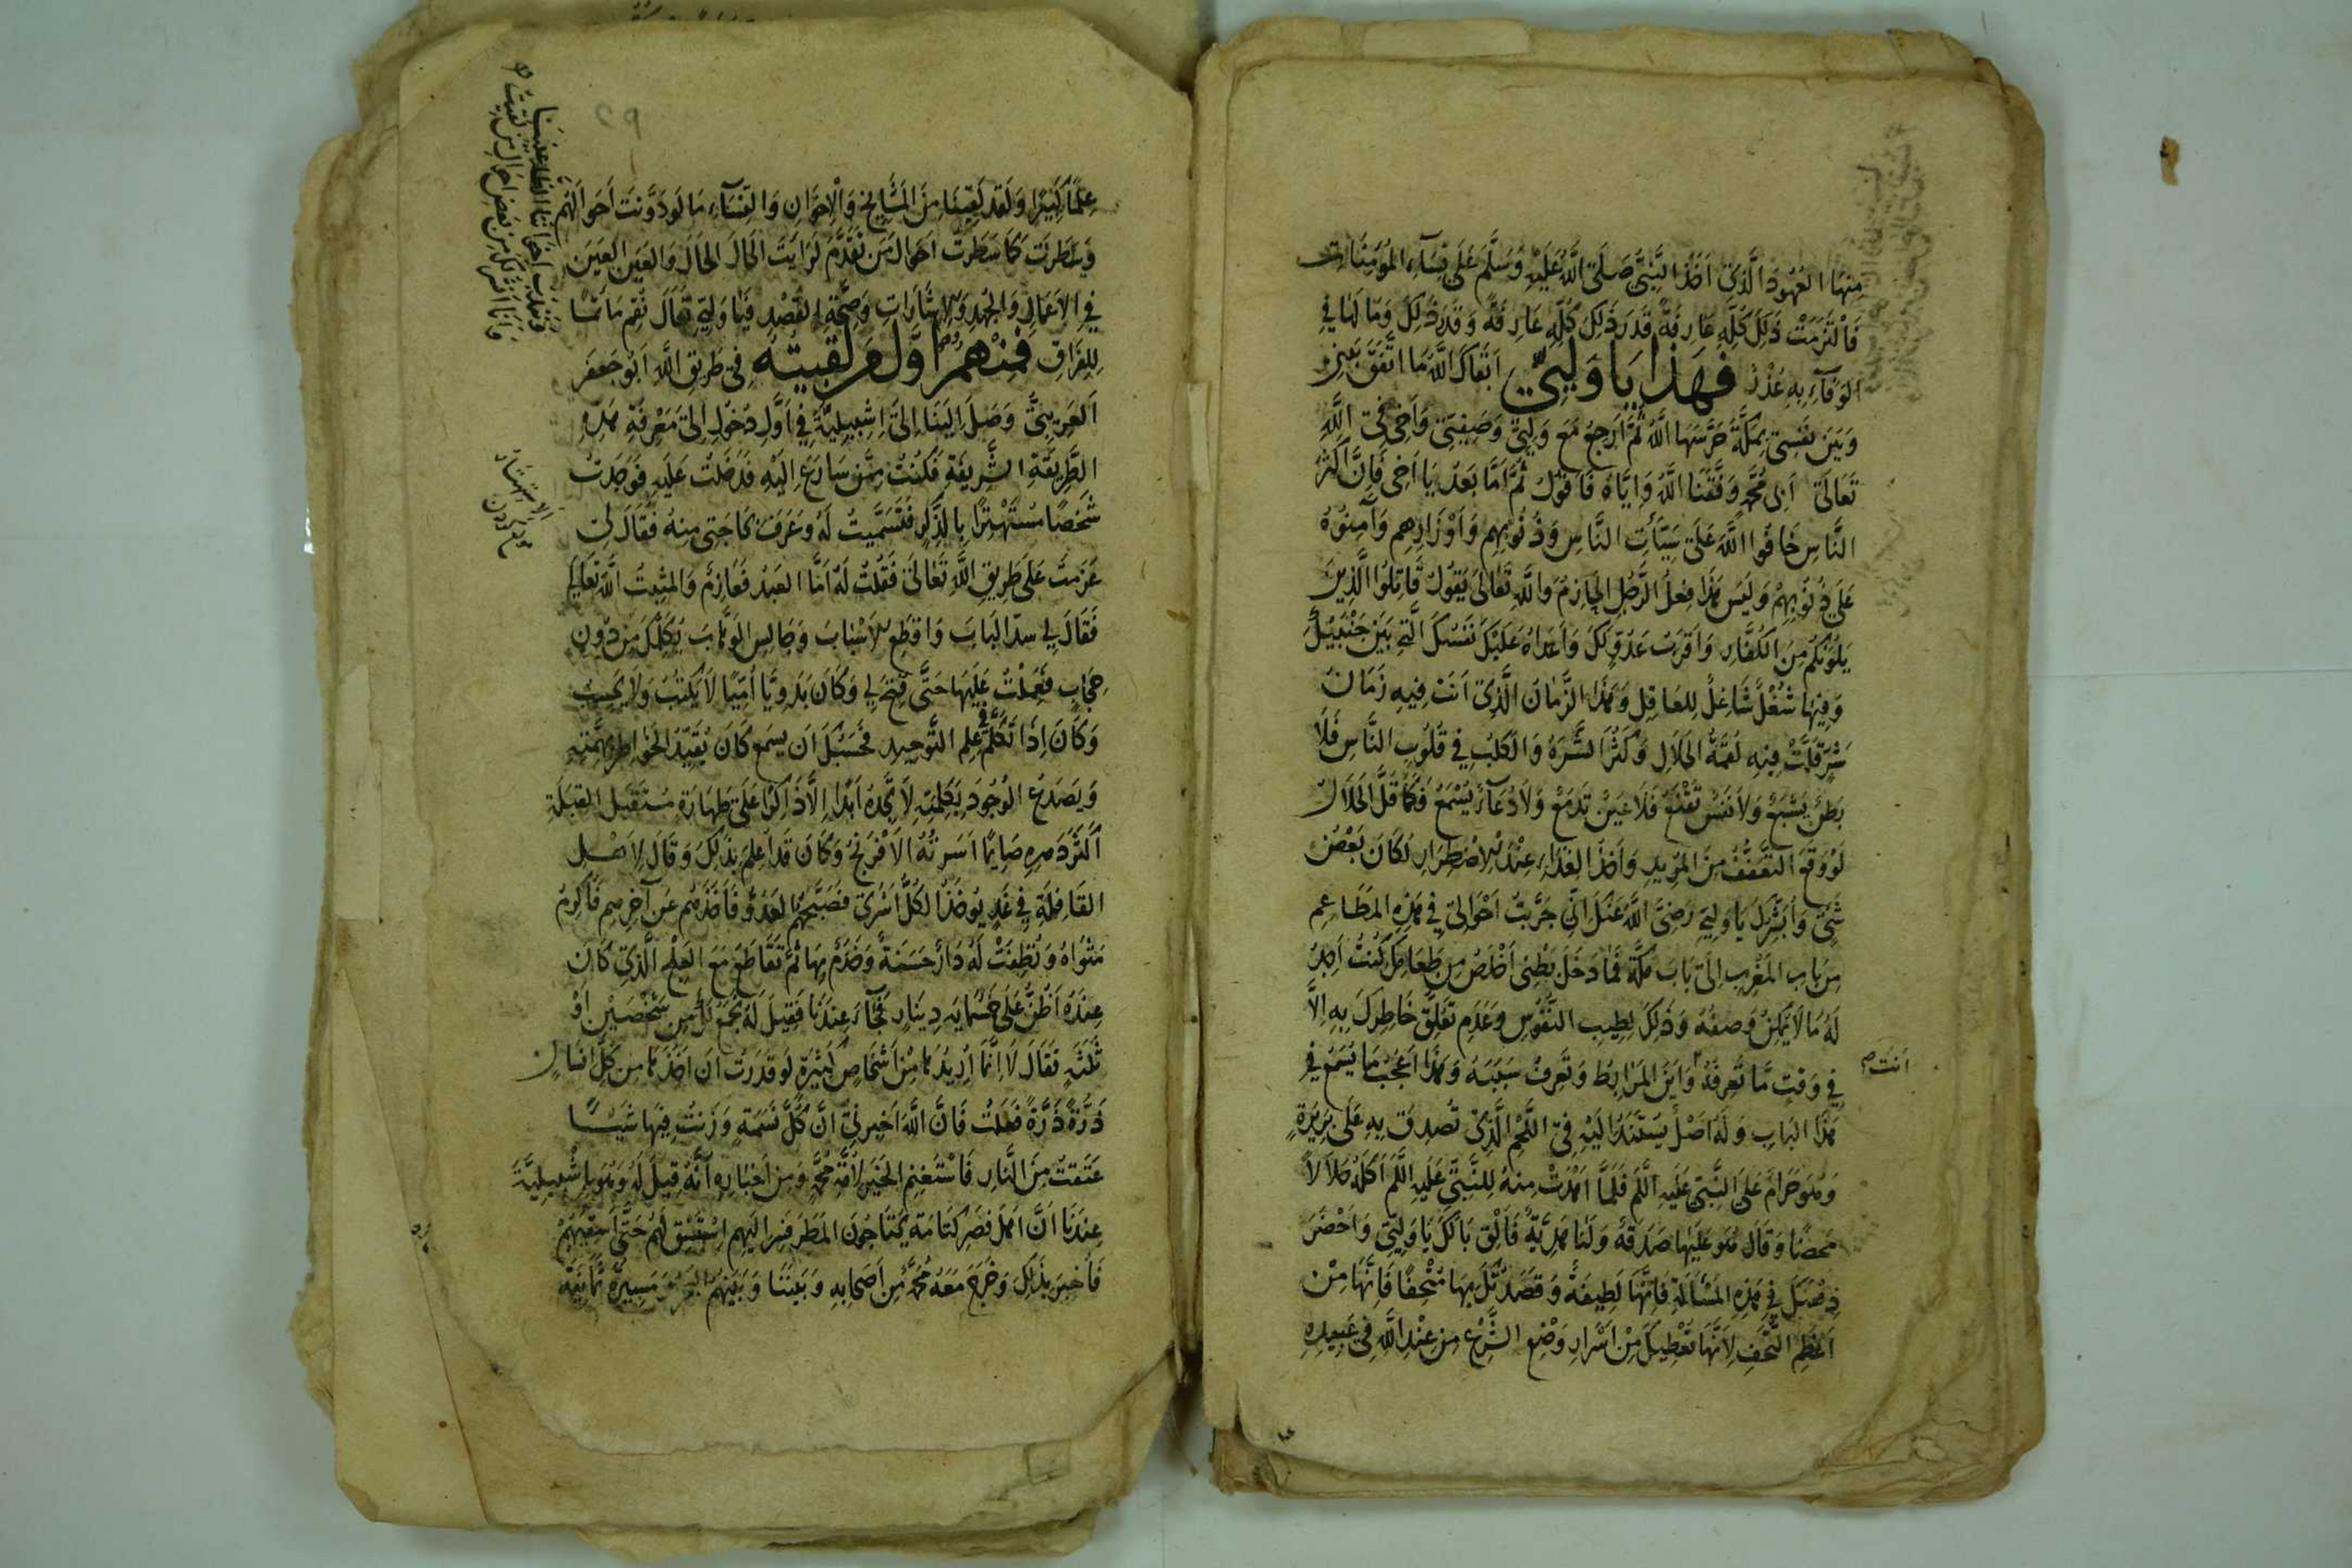 مِنهَا العُهُودَ الَّذِي اَخَذَ النَّبِيُّ صَلَّى اللَّهُ عَلَيْهِ وَسَلَّمَ عَلَى نِسَآءِ المُؤمِنَاتِ
فَالْتَزَمَتْ ذَلِكَ كُلَّهِ عَارِفَةً قَدَرَ ذَلِكَ كُلِّهِ عَارِفَةً وَقَدَرَ ذَلِكَ وَمَا لَهَا فِي
الوَفَآءِ بِهِ عُذْرٌ فَهَذَا يَا وَلِيِّي اَبقَاكَ اللَّهُ مَا اتَّفَقَ بَينِي
وَبَينَ نَفسِي بِمَكَّةَ حَرَسَهَا اللَّهُ ثُمَّ اَرجِعُ مَعَ وَلِيِّي وَصَفِيِّي وَاَخِي فِي اللَّهِ
تَعَالَى اَبِي مُحَمَّدٍ وَفَّقَنَا اللَّهُ وَاِيَّاهُ فَاَقُولُ ثُمَّ اَمَّا بَعدُ يَا اَخِي فَاِنَّ اَكثَرَ
النَّاسِ خَافُوا اللَّهَ عَلَى سَيِّئَاتِ النَّاسِ وَذُنُوبِهِم وَاَوْزَارِهِم وَآمِنُوهُ
عَلَى ذُنُوبِهِمْ وَلَيسَ هَذَا فِعلُ الرَّجُلِ الحَازِمِ وَاللَّهُ تَعَالَى يَقُولُ قَاتِلُوا الَّذِينَ
يَلُونَكُم مِنَ الكُفَّارِ وَاَقرَبُ عَدُوٍّ لَكَ وَاَعدَاهُ عَلَيْكَ نَفسُكَ الَّتِي بَيْنَ جَنْبَيْكَ
وَفِيهَا شُغْلٌ شَاغِلٌ لِلعَاقِلِ وَهَذَا الزَّمَانُ الَّذِي اَنتَ فِيهِ زَمَانُ
شَرٍّ قَلَّتْ فِيهِ لُقمَةُ الحَلَالِ وَكَثُرَ الشَّرَهُ وَالكَلَبُ فِي قُلُوبِ النَّاسِ فَلَا
بَطنٌ يَشبَعُ وَلَا نَفسٌ تَقْنَعُ فَلَا عَينٌ تَدمَعُ وَلَا دُعَآءٌ يُسْمَعُ فَكَمَا قَلَّ الحَلَالُ
لَوْ وَقَعَ التَّعَفُّفُ مِنَ المُرِيدِ وَاَخذُ الغِذَاءِ عِنْدَ الِاضطِرَارِ لَكَانَ بَعْضُ
شَيْءٍ وَاُبَشِّرُكَ يَا وَلِيِّي رَضِيَ اللَّهُ عَنْكَ اَنِّي جَرَّبتُ اَحْوَالِي فِي هَذِهِ المَطَاعِمِ
مِن بَابِ المَغْرِبِ اِلَى بَابِ مَكَّةَ فَمَا دَخَلَ بَطْنِي اَخلَصُ مِن طَعَامِكَ كُنتُ اَجِدُ
لَهُ مَا لَا يُمكِنُ وَصفُهُ وَذَلِكَ لِطِيبِ النُّفُوسِ وَعَدَمِ تَعَلُّقِ خَاطِرِكَ بِهِ اِلَّا
فِي وَقتٍ مَّا تَعرِفُهُ وَاَينَ المَرَابِطُ وَتَعرِفُ سَبَبَهُ وَهَذَا اَعْجَبُ مَا يُسمَعُ فِي
اَنتَ
هَذَا البَابِ وَلَهُ اَصْلٌ يَستَنِدُ اِلَيْهِ فِي اللَّحْمِ الَّذِي تُصُدِّقَ بِهِ عَلَى بَرِيرَةٍ
وَهُوَ حَرَامٌ عَلَى النَّبِيِّ عَلَيهِ السَّلَم فَلَمَّا اَهْدَتْ مِنهُ لِلنَّبِيِّ عَلَيهِ السَّلَم اَكَلَهُ حَلَالًا
مَحضًا وَقَالَ هُوَ عَلَيهَا صَدَقَةٌ وَلَنَا هَدِيَّةٌ فَاَلْقِ بَالَكَ يَا وَلِيِّي وَاَحْضِرْ
ذِهْنَكَ فِي هَذِهِ المَسْأَلَةِ فَاِنَّهَا لَطِيفَةٌ وَقَصَدتُكَ بِهَا مُتْحِفًا فَاِنَّهَا مِنْ
اَعْظَمِ التُّحَفِ لِاَنَّهَا تُعْطِيكَ مِنْ اَسْرَارِ وَضْعِ الشَّرْعِ مِن عِنْدِ اللَّهِ فِي عَبِيدِهِ
٢٩
عِلمًا كَثِيرًا وَلَقَد لَقِينَا مِنَ المَشَايِخِ وَالْاِخوَانِ وَالنِّسَآءِ مَا لَو دُوِّنَت اَحوَالُهُم
وَسُطِرَت كَمَا سُطِرَت اَحوَالُ مَن تَقَدَّمَ لَرَاَيتَ الحَالَ الحَالَ وَالعَينَ العَينَ
فِي الاَعمَالِ وَالجُهدِ وَالاِشَارَاتِ وَصِحَّةِ القَصْدِ فَيَا وَلِيِّي تَعَالَ نُقِم مَأتَمًا
لِلفِرَاقِ فَمِنْهُم اَوَّلُ مَن لَقِيتُهُ فِي طَرِيقِ اللَّهِ اَبُو جَعفَر
العَرِيبِيُّ وَصَلَ اِلَينَا اِلَى اِشبِيلِيَّةَ فِي اَوَّلِ دُخُولِ اِلَى مَعْرِفَةِ هَذِهِ
الطَّرِيقَةِ الشَّرِيفَةِ فَكُنتُ مِمَّن سَارَعَ اِلَيْهِ فَدَخَلتُ عَلَيهِ فَوَجَدتُ
شَخصًا مُسْتَهْتِرًا بِالذِّكرِ فَتَسَمَّيتُ لَهُ وَعَرَفَ حَاجَتِي مِنهُ فَقَالَ لِي
عَزَمتَ عَلَى طَرِيقِ اللَّهِ تَعَالَى فَقُلتُ لَهُ اَمَّا العَبدُ فَعَازِمٌ وَالمُثبِتُ اللَّهُ تَعَالَى
فَقَالَ لِي سُدَّ البَابَ وَاقطَعِ الاَسْبَابَ وَجَالِسِ الوَهَّابَ يُكَلِّمْكَ مِن دُونِ
حِجَابٍ فَعَمِلْتُ عَلَيهَا حَتَّى فُتِحَ لِي وَكَانَ بَدَوِيًّا اُمِّيًّا لَا يَكتُبُ وَلَا يَحسِبُ
وَكَانَ اِذَا تَكَلَّمَ فِي عِلمِ التَّوحِيدِ فَحَسْبُكَ اَن يَسمَع كَانَ يُقَيِّدُ الخَوَاطِرَ بِهِمَّتِهِ
وَيَصدَعُ الوُجُودَ بِكَلِمَتِهِ لَا تَجِدُهُ اَبَدًا اِلَّا ذَاكِرًا عَلَى طَهَارَةٍ مُستَقبِلَ القِبلَةِ
اَكثَرَ دَهرِهِ صَايِمًا اَسَرَتْهُ الاِفْرَنْجُ وَكَانَ قَد اَعلَمَ بِذَلِكَ وَقَالَ لِاَهْلِ
القَافِلَةِ فِي غَدٍ يُوخَذُ الكُلُّ اَسْرَى فَصَبَّحَهُمُ العَدُوُّ فَاَخَذَهُم عَن آخِرِهِم فَاُكرِمَ
مَثوَاهُ وَنُظِفَتْ لَهُ دَارٌ حَسَنَةٌ وَخَدَمٌ بِهَا ثُمَّ تَقَاطَعَ مَعَ العِلْجِ الَّذِي كَانَ
عِندَهُ اَظُنُّ عَلَى خَمسُمِايَة دِينَارٍ فَجَآءَ عِندَنَا فَقِيلَ لَهُ نَجمَعُ لَكَ مِن شَخْصَيْنِ اَوْ
ثَلَثَةٍ فَقَالَ لَا اِنَّمَا اُرِيدُهَا مِنْ اَشْخَاصٍ كَثِيرَةٍ لَو قَدَرتُ اَن اٰخُذَهَا مِن كُلِّ انسَانٍ
ذَرَّةً ذَرَّةً فَعَلتُ فَاِنَّ اللَّهَ اَخبَرَنِي اَنَّ كُلَّ نَسَمَةٍ وَزَنَت فِيهَا شَيئًا
عَتَقَت مِنَ النَّارِ فَاَسْتَغنِمِ الخَيرَ لِاُمَّةِ مُحَمَّدٍ وَمِن اَخبَارِهِ اَنَّهُ قِيلَ لَهُ وَهُوَ بِاِشبِيلِيَّةَ
عِندَنَا اَنَّ اَهلَ قَصرِ كُتَامَة يَحتَاجُونَ المَطَرَ فَسِر اِلَيهِم اِسْتَسْقِ لَهُم حَتَّى اَسقِيَهُمْ
فَاُخبِرَ بِذَلِكَ وَخَرَجَ مَعَهُ مُحَمَّدٌ مِن اَصحَابِهِ وَبَينَنَا وَبَينَهُمُ البَحرُ وَمَسِيرَةُ ثَمَانِيَةِ